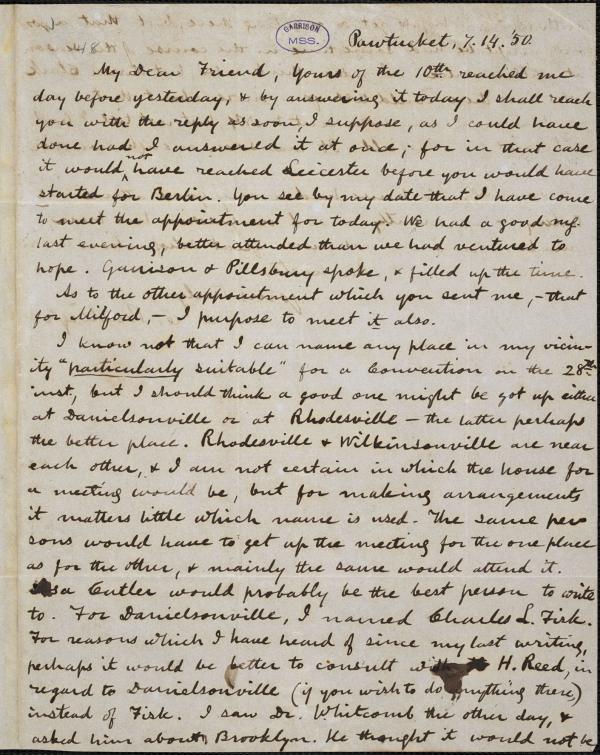 GARRISON
MSS.
Pawtucket, 7.14.'50.
My Dear Friend, Yours of the 10th reached me
day before yesterday, & by answering it today I shall reach
you with the reply as soon, I suppose, as I could have
done had I answered it at once; for in that case
it would not have reached Leicester before you would have
started for Berlin. You see by my date that I have come
to meet the appointment for today. We had a good mg.
last evening, better attended than we had ventured to
hope. Garrison & Pillsbury spoke, & filled up the time.
As to the other appointment which you sent me, – that
for Milford, – I purpose to meet it also.
I know not that I can name any place in my vicin-
ity "particularly suitable" for a Convention on the 28th
inst, but I should think a good one might be got up either
at Danielsonville or at Rhodesville – the latter perhaps
the better place. Rhodesville & Wilkinsonville are near
each other, & I am not certain in which the house for
a meeting would be, but for making arrangements
it matters little which name is used. The same per
sons would have to get up the meeting for the one place
as for the other, & mainly the same would attend it.
Cutler would probably be the best person to write
to. For Danielsonville, I named Charles L. Fisk.
For reasons which I have heard of since my last writing,
perhaps it would be better to consult H. Reed, in
regard to Danielsonville (if you wish to do anything there)
instead of Fisk. I saw Dr. Whitcomb the other day, &
asked him about Brooklyn. He thought it would not be